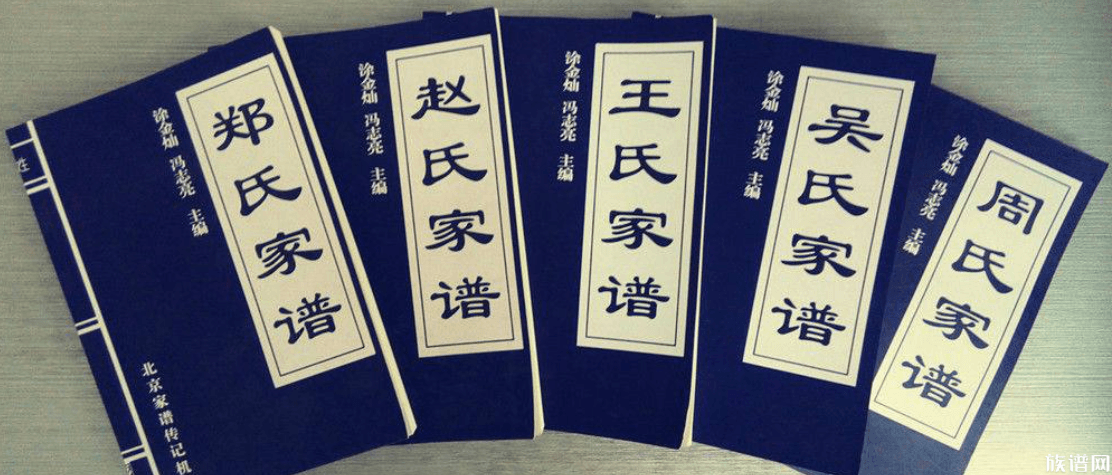 郑氏家谱
涂金灿 冯志亮 主编
北京家谱传记机
姓
赵氏家谱
涂金灿 冯志亮 主编
王氏家谱
涂金灿 冯志亮 主编
吴氏家谱
涂金灿 冯志亮 主编
周氏家谱
涂金灿 冯志亮 主编
族谱网